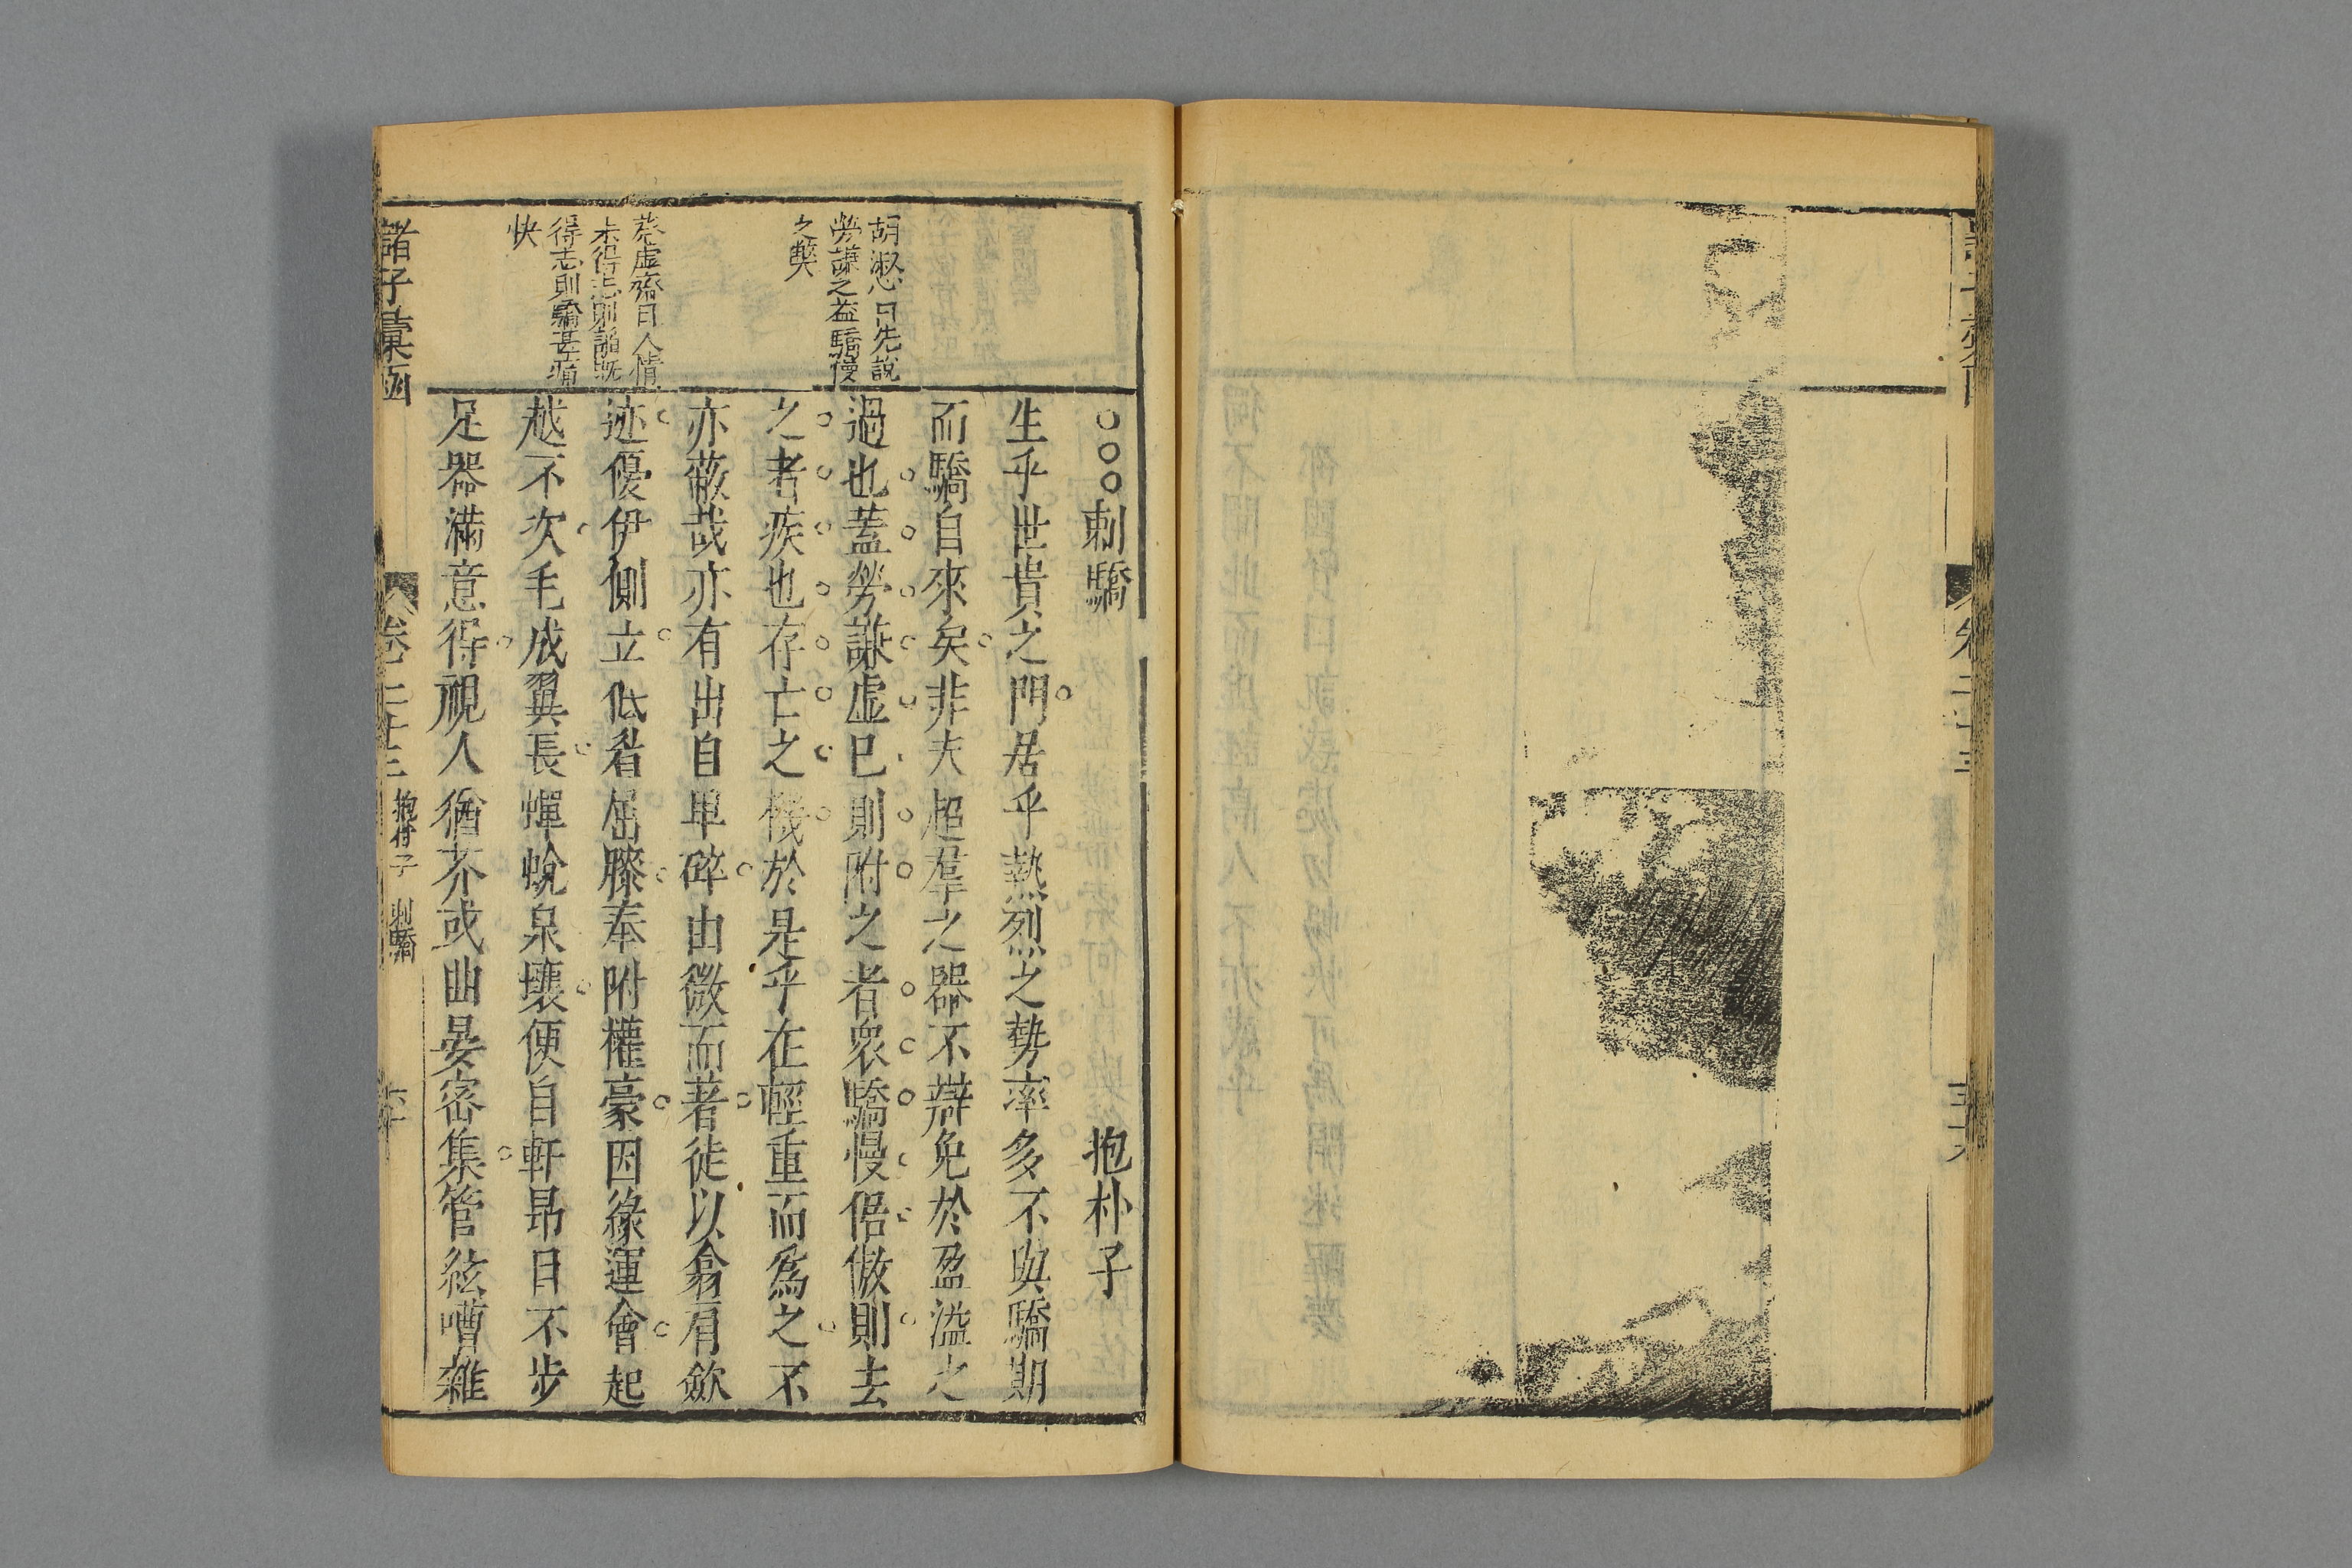 ○○○刺驕　抱朴子
生乎世貴之門居乎熱烈之勢率多不與驕期
而驕自來矣非夫超羣之器不辯免於盈溢之
過也蓋勞謙虛巳則附之者衆驕慢倨傲則去
之者疾也存亡之機於是乎在輕重而爲之不
亦蔽哉亦有出自卑碎由微而著徒以翕肩斂
迹偓伊側立低眉屈膝奉附權豪因緣運會起
越不次毛成翼長蟬蛻泉壤便自軒昻目不步
足器滿意得視人猶芥或曲晏密集管絃嘈雜
胡　曰先說
勞謙之益驕慢
之弊
蔡虛齋曰人情
未得志則謟旣
得志則驕甚痛
快
諸子彙函
卷二十三
抱朴子
刺驕
六十